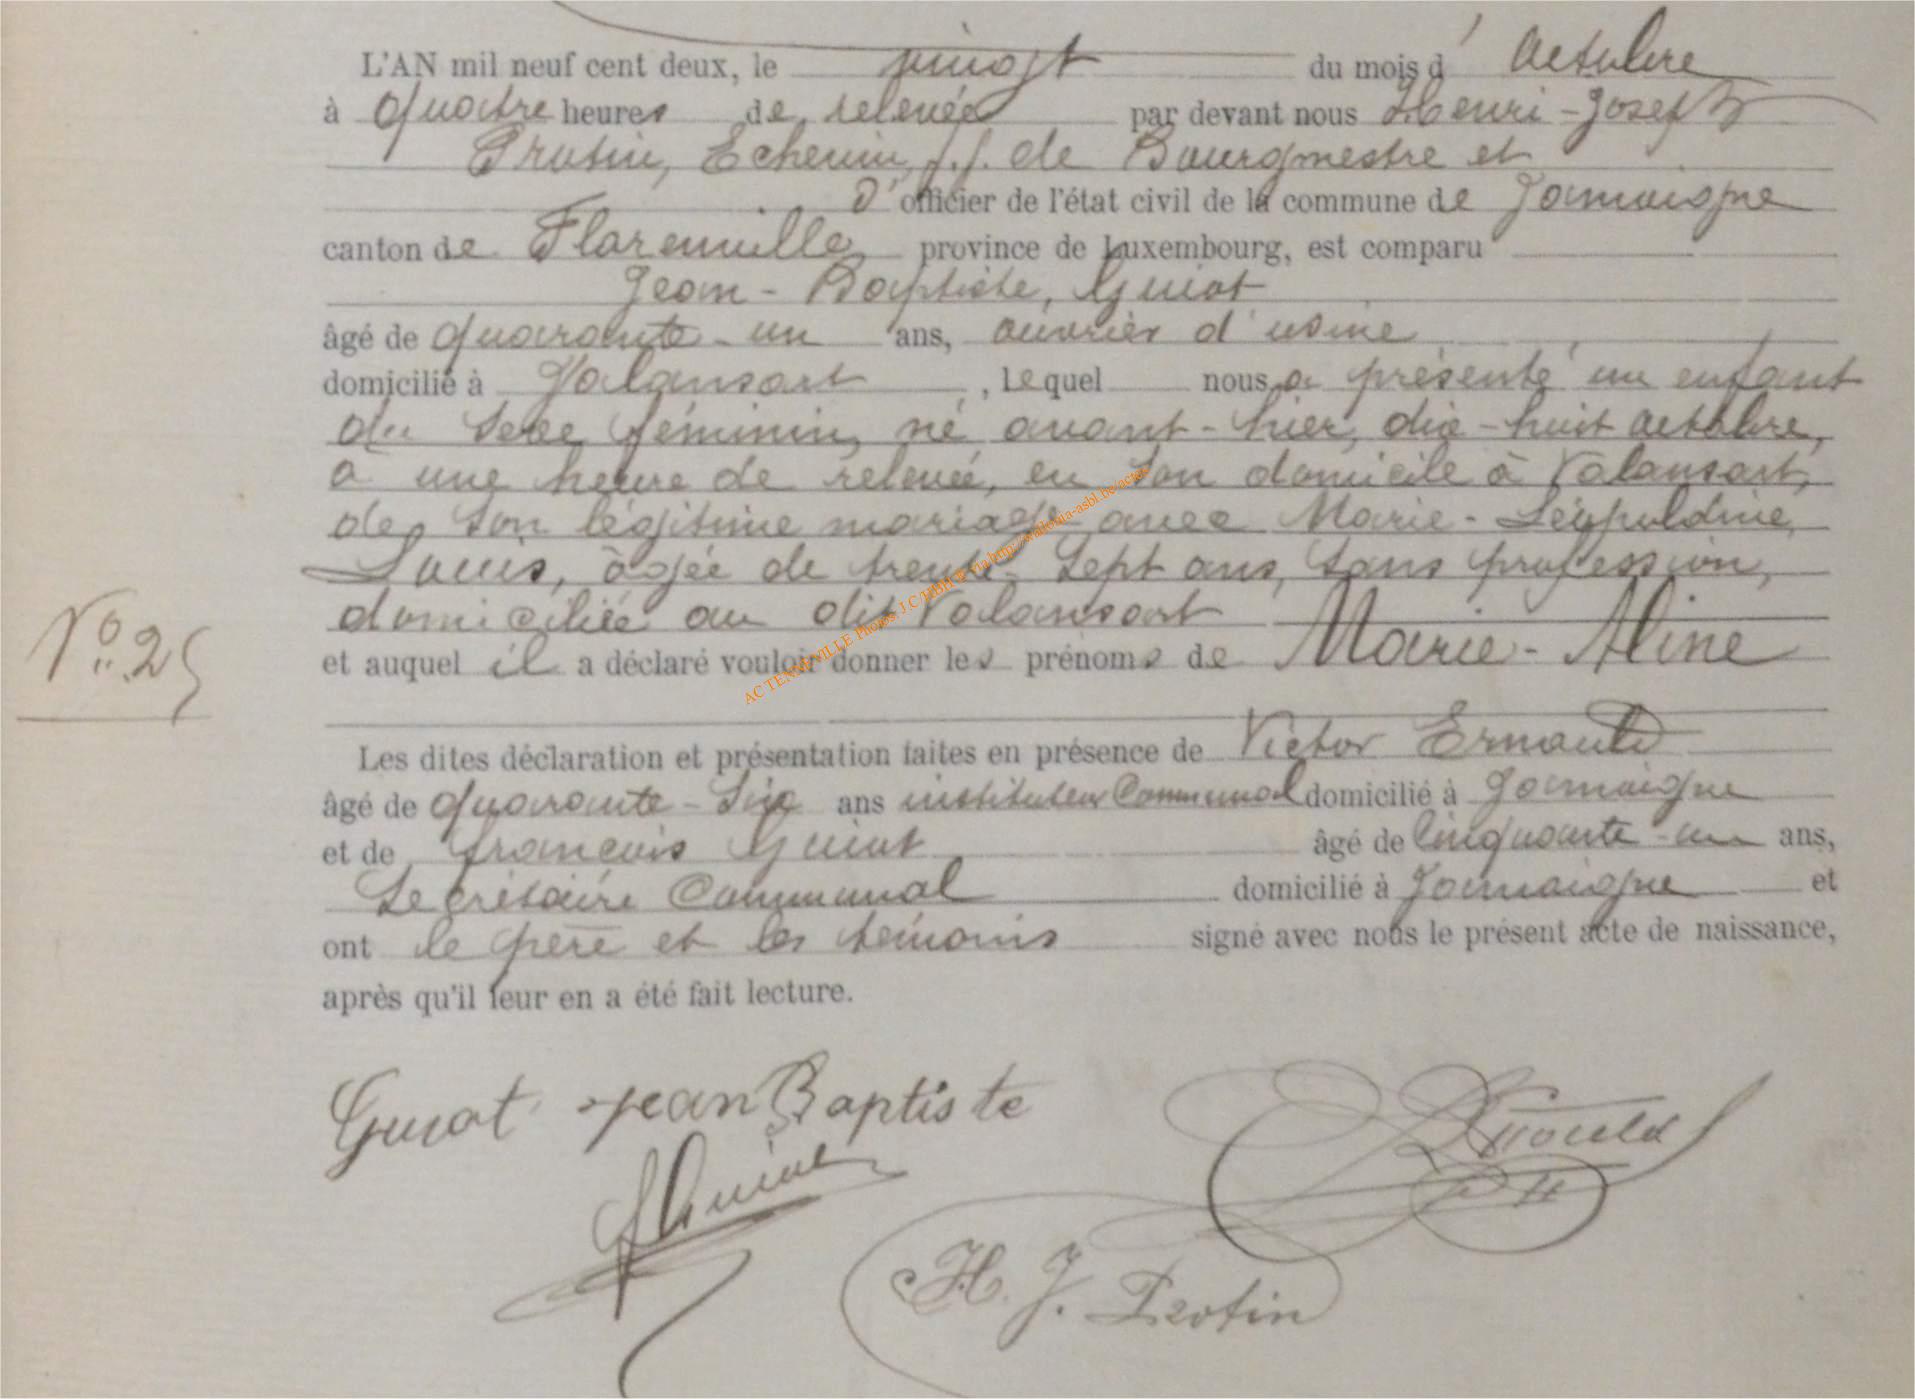 L'AN mil neuf cent deux, le vingt du mois d'Octobre
à quatre heures de relevée par devant nous Henri-Joseph
Protin, Echevin, f.f. de Bourgmestre et
d'officier de l'état civil de la commune de Jamoigne
canton de Florenville province de Luxembourg, est comparu
Jean-Baptiste, Guiot
âgé de quarante-un ans, ouvrier d'usine
domicilié à Valansart, lequel nous a présenté un enfant
du sexe féminin, né avant-hier, dix-huit octobre,
à une heure de relevée, en son domicile à Valansart,
de son légitime mariage avec Marie-Léopoldine,
Louis, âgée de trente-sept ans, sans profession,
domiciliée au dit Valansart
N° 25
et auquel il a déclaré vouloir donner les prénoms de Marie-Aline
Les dites déclaration et présentation faites en présence de Victor
âgé de quarante-six ans instituteur Communal domicilié à Jamoigne
et de François Guiot âgé de Cinquante-un ans,
Secrétaire Communal domicilié à Jamoigne et
ont le père et les témoins signé avec nous le présent acte de naissance,
après qu'il leur en a été fait lecture.
Guiot Jean Baptiste
H. J. Protin